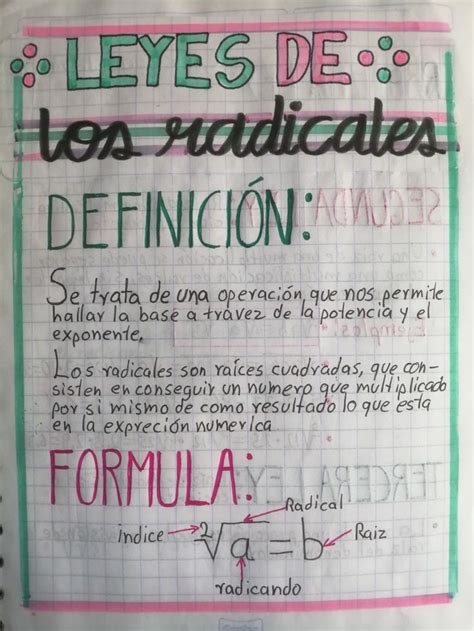 LEYES DE
los radicales
DEFINICIÓN:
Se trata de una operación, que nos permite
hallar la base a travez de la potencia y el
exponente.
Los radicales son raíces cuadradas, que con-
sisten en conseguir un numero que multiplicado
por si mismo de como resultado lo que esta
en la expreción numerica
FORMULA:
Radical
indice 2√a = b Raiz
radicando